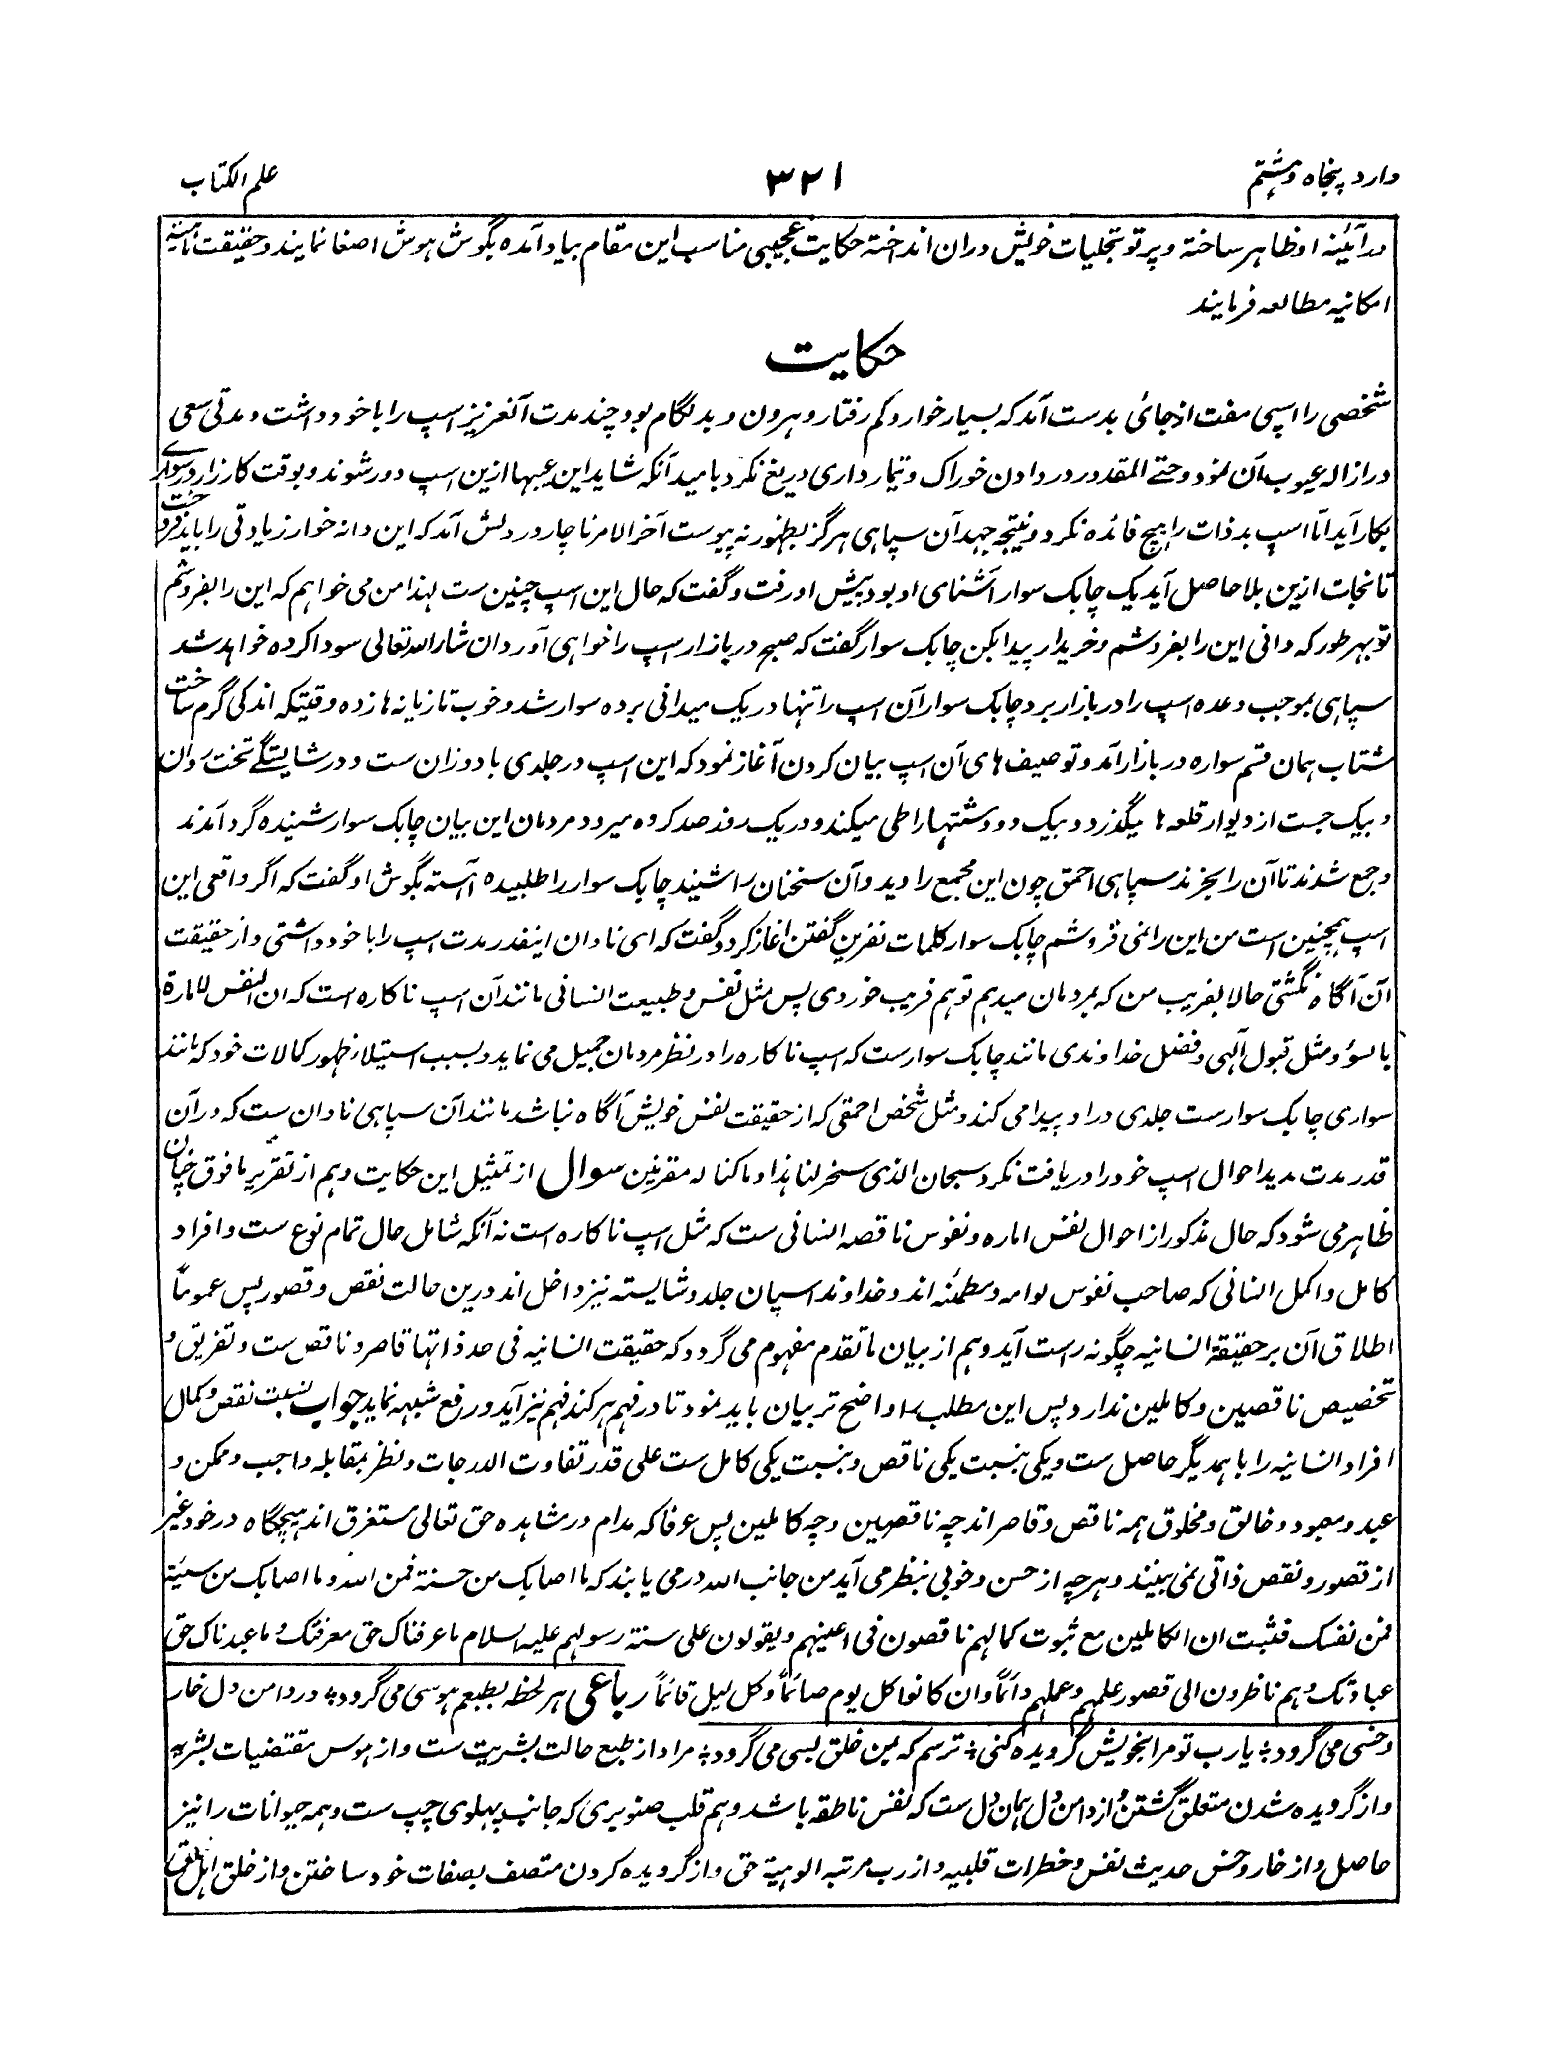 وارد پنجاه و هشتم ۳۲۱ علم الکتاب
در آئینه او ظاهر ساخته و پرتو تجلیات خویش دران انداخته حکایت عجیبی مناسب این مقام بیاد آمده بگوش هوش اصغا نمایند و حقیقت ناقصه
امکانیه مطالعه فرمایند
حکایت
شخصی را اسپی مفت از جائی بدست آمد که بسیار خوار و کم رفتار و هرون و بد لگام بود چند مدت آنعزیز اسپ را با خود داشت و مدتی سعی
در ازاله عیوب آن نمود و حتے المقدور در دادن خوراک و تیمار داری دریغ نکرد بامید آنکه شاید این عیبها ازین اسپ دور شوند و بوقت کارزار و سواری
بکار آید اما اسپ بد ذات را هیچ فائده نکرد و نتیجه جهد آن سپاهی هرگز بظهور نه پیوست آخر الامر ناچار در دلش آمد که این دانه خوار زیادتی را باید فروخت
تا نجات ازین بلا حاصل آید یک چابک سوار آشنای او بود پیش او رفت و گفت که حال این اسپ چنین ست لهذا من می خواهم که این را بفروشم
تو بهر طور که دانی این را بفروش و خریدار پیدا بکن چابک سوار گفت که صبح در بازار اسپ را خواهی آورد ان شاء الله تعالی سودا کرده خواهد شد
سپاهی بموجب وعده اسپ را در بازار برد چابک سوار آن اسپ را تنها در یک میدانی برده سوار شد و خوب تازیانه ها زده وقتیکه اندکی گرم ساخت
شتاب همان قسم سواره در بازار آمد و توصیف های آن اسپ بیان کردن آغاز نمود که این اسپ در جلدی باد وزان ست و در شایستگے تخت روان
و بیک جست از دیوار قلعه ها میگذرد و بیک دو دشتها را طی میکند و در یک روز صد کروه میرود مردمان این بیان چابک سوار شنیده گرد آمدند
و جمع شدند تا آن را بخرند سپاهی احمق چون این مجمع را دید و آن سخنان را شنید چابک سوار را طلبیده آهسته بگوش او گفت که اگر واقعی این
اسپ همچنین است من این را نمی فروشم چابک سوار کلمات نفرین گفتن آغاز کرد و گفت که ای نادان اینقدر مدت اسپ را با خود داشتی و از حقیقت
آن آگاه نگشتی حالا بفریب من که بمردمان میدهم تو هم فریب خوردی پس مثل نفس و طبیعت انسانی مانند آن اسپ ناکاره است که ان النفس لامارة
بالسوٓ و مثل قبول آلهی و فضل خداوندی مانند چابک سوار ست که اسپ ناکاره را در نظر مردمان جمیل می نماید و بسبب استیلاء ظهور کمالات خود که مانند
سواری چابک سوار ست جلدی در او پیدا می کند و مثل شخص احمقی که از حقیقت نفس خویش آگاه نباشد مانند آن سپاهی نادان ست که در آن
قدر مدت مدید احوال اسپ خود را دریافت نکرد سبحان الذی سخر لنا هذا و ما کنا له مقرنین سوال از تمثیل این حکایت و هم از تقریر ما فوق چنان
ظاهر می شود که حال مذکور از احوال نفس اماره و نفوس ناقصه انسانی ست که مثل اسپ ناکاره است نه آنکه شامل حال تمام نوع ست و افراد
کامل و اکمل انسانی که صاحب نفوس لوامه و مطمئنه اند و خداوند اسپان جلد و شایسته نیز داخل اند درین حالت نقص و قصور پس عموماً
اطلاق آن بر حقیقة انسانیه چگونه راست آید و هم از بیان ما تقدم مفهوم می گردد که حقیقت انسانیه فی حد ذاتها قاصر و ناقص ست و تفریق و
تخصیص ناقصین و کاملین ندارد پس این مطلب را واضح تر بیان باید نمود تا در فهم هر کند فهم نیز آید و رفع شبهه نماید جواب نسبت نقص و کمال
افراد انسانیه را با همدیگر حاصل ست و یکی بنسبت یکی ناقص و بنسبت یکی کامل ست علی قدر تفاوت الدرجات و نظر بمقابله واجب و ممکن و
عبد و معبود و خالق و مخلوق همه ناقص و قاصر اند چه ناقصین و چه کاملین پس عرفا که مدام در مشاهده حق تعالی مستغرق اند هیچگاه در خود غیر
از قصور و نقص ذاتی نمی بینند و هر چه از حسن و خوبی بنظر می آید من جانب الله در می یابند که ما اصابک من حسنة فمن الله و ما اصابک من سیئة
فمن نفسک فثبت ان الکاملین مع ثبوت کمالهم ناقصون فی اعینهم و یقولون علی سنة رسولهم علیه السلام ما عرفناک حق معرفتک و ما عبدناک حق
عبادتک و هم ناظرون الی قصور علمهم و عملهم دائماً و ان کانوا کل یوم صائماً و کل لیل قائماً رباعی هر لحظه بطبعم هوسی می گردد ؞ در دامن دل خار
و خسی می گردد ؞ یا رب تو مرا بخویش گرویده کنی ؞ ترسم که بمن خلق بسی می گردد ؞ مراد از طبع حالت بشریت ست و از هوس مقتضیات بشریه
و از گرویده شدن متعلق گشتن و از دامن دل همان دل ست که نفس ناطقه باشد و هم قلب صنوبری که جانب پهلوی چپ ست و همه حیوانات را نیز
حاصل و از خار و خس حدیث نفس و خطرات قلبیه و از رب مرتبه الوهیة حق و از گرویده کردن متصف بصفات خود ساختن و از خلق اهل